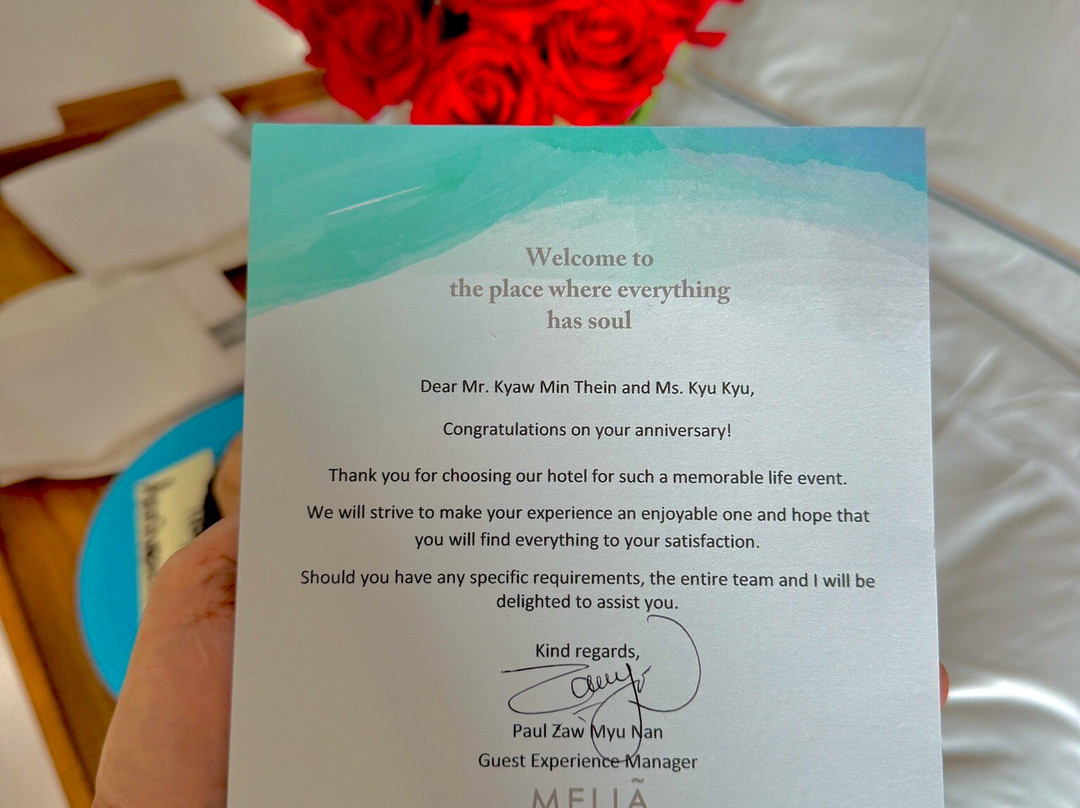 Welcome to
the place where everything
has soul
Dear Mr. Kyaw Min Thein and Ms. Kyu Kyu,
Congratulations on your anniversary!
Thank you for choosing our hotel for such a memorable life event.
We will strive to make your experience an enjoyable one and hope that
you will find everything to your satisfaction.
Should you have any specific requirements, the entire team and I will be
delighted to assist you.
Kind regards,
Paul Zaw Myu Nan
Guest Experience Manager
MELIÃ